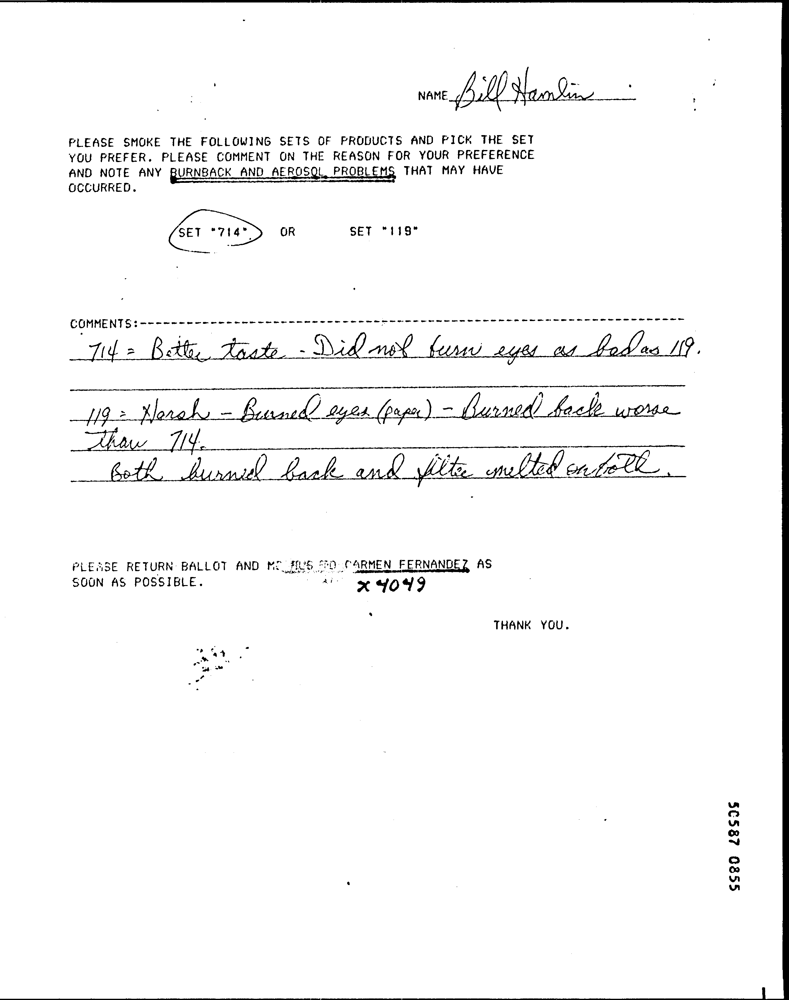 NAME Bill Hamlin
PLEASE SMOKE THE FOLLOWING SETS OF PRODUCTS AND PICK THE SET
YOU PREFER. PLEASE COMMENT ON THE REASON FOR YOUR PREFERENCE
AND NOTE ANY BURNBACK AND AEROSOL PROBLEMS THAT MAY HAVE
OCCURRED.
SET "714" OR SET "119"
COMMENTS:
714 = Better taste - Did not burn eyes as bad as 119.
119 = Harsh - Burned eyes (paper) - Burned back worse
than 714.
Both burned back and filter melted on both.
PLEASE RETURN BALLOT AND CARMEN FERNANDEZ AS
SOON AS POSSIBLE. x4049
THANK YOU.
50587 0855